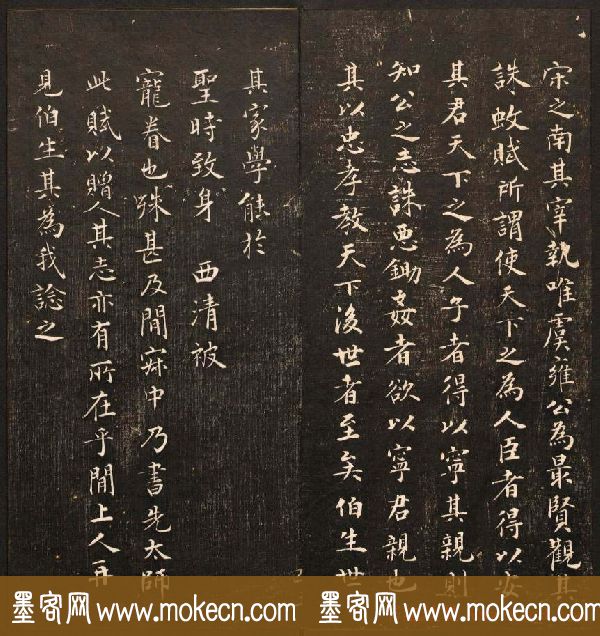 宋之南其宰執唯虞雍公為最賢觀其
誅蚊賦所謂使天下之為人臣者得以安
其君天下之為人子者得以寧其親則
知公之志誅惡鋤姦者欲以寧君親也
其以忠孝教天下後世者至矣伯生世
其家學能於
聖時致身 西清被
寵眷也殊甚及閒寂中乃書先太師
此賦以贈人其志亦有所在乎閒上人再
見伯生其為我諗之
墨客网 www.mokecn.com
墨客网 www.mokecn.com